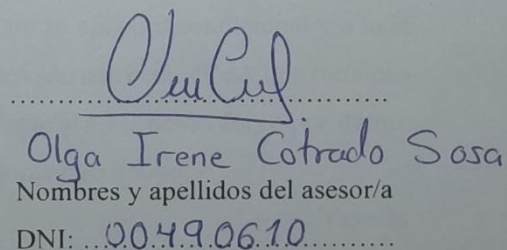 Olga Irene Cotrado Sosa
Nombres y apellidos del asesor/a
DNI: 00490610